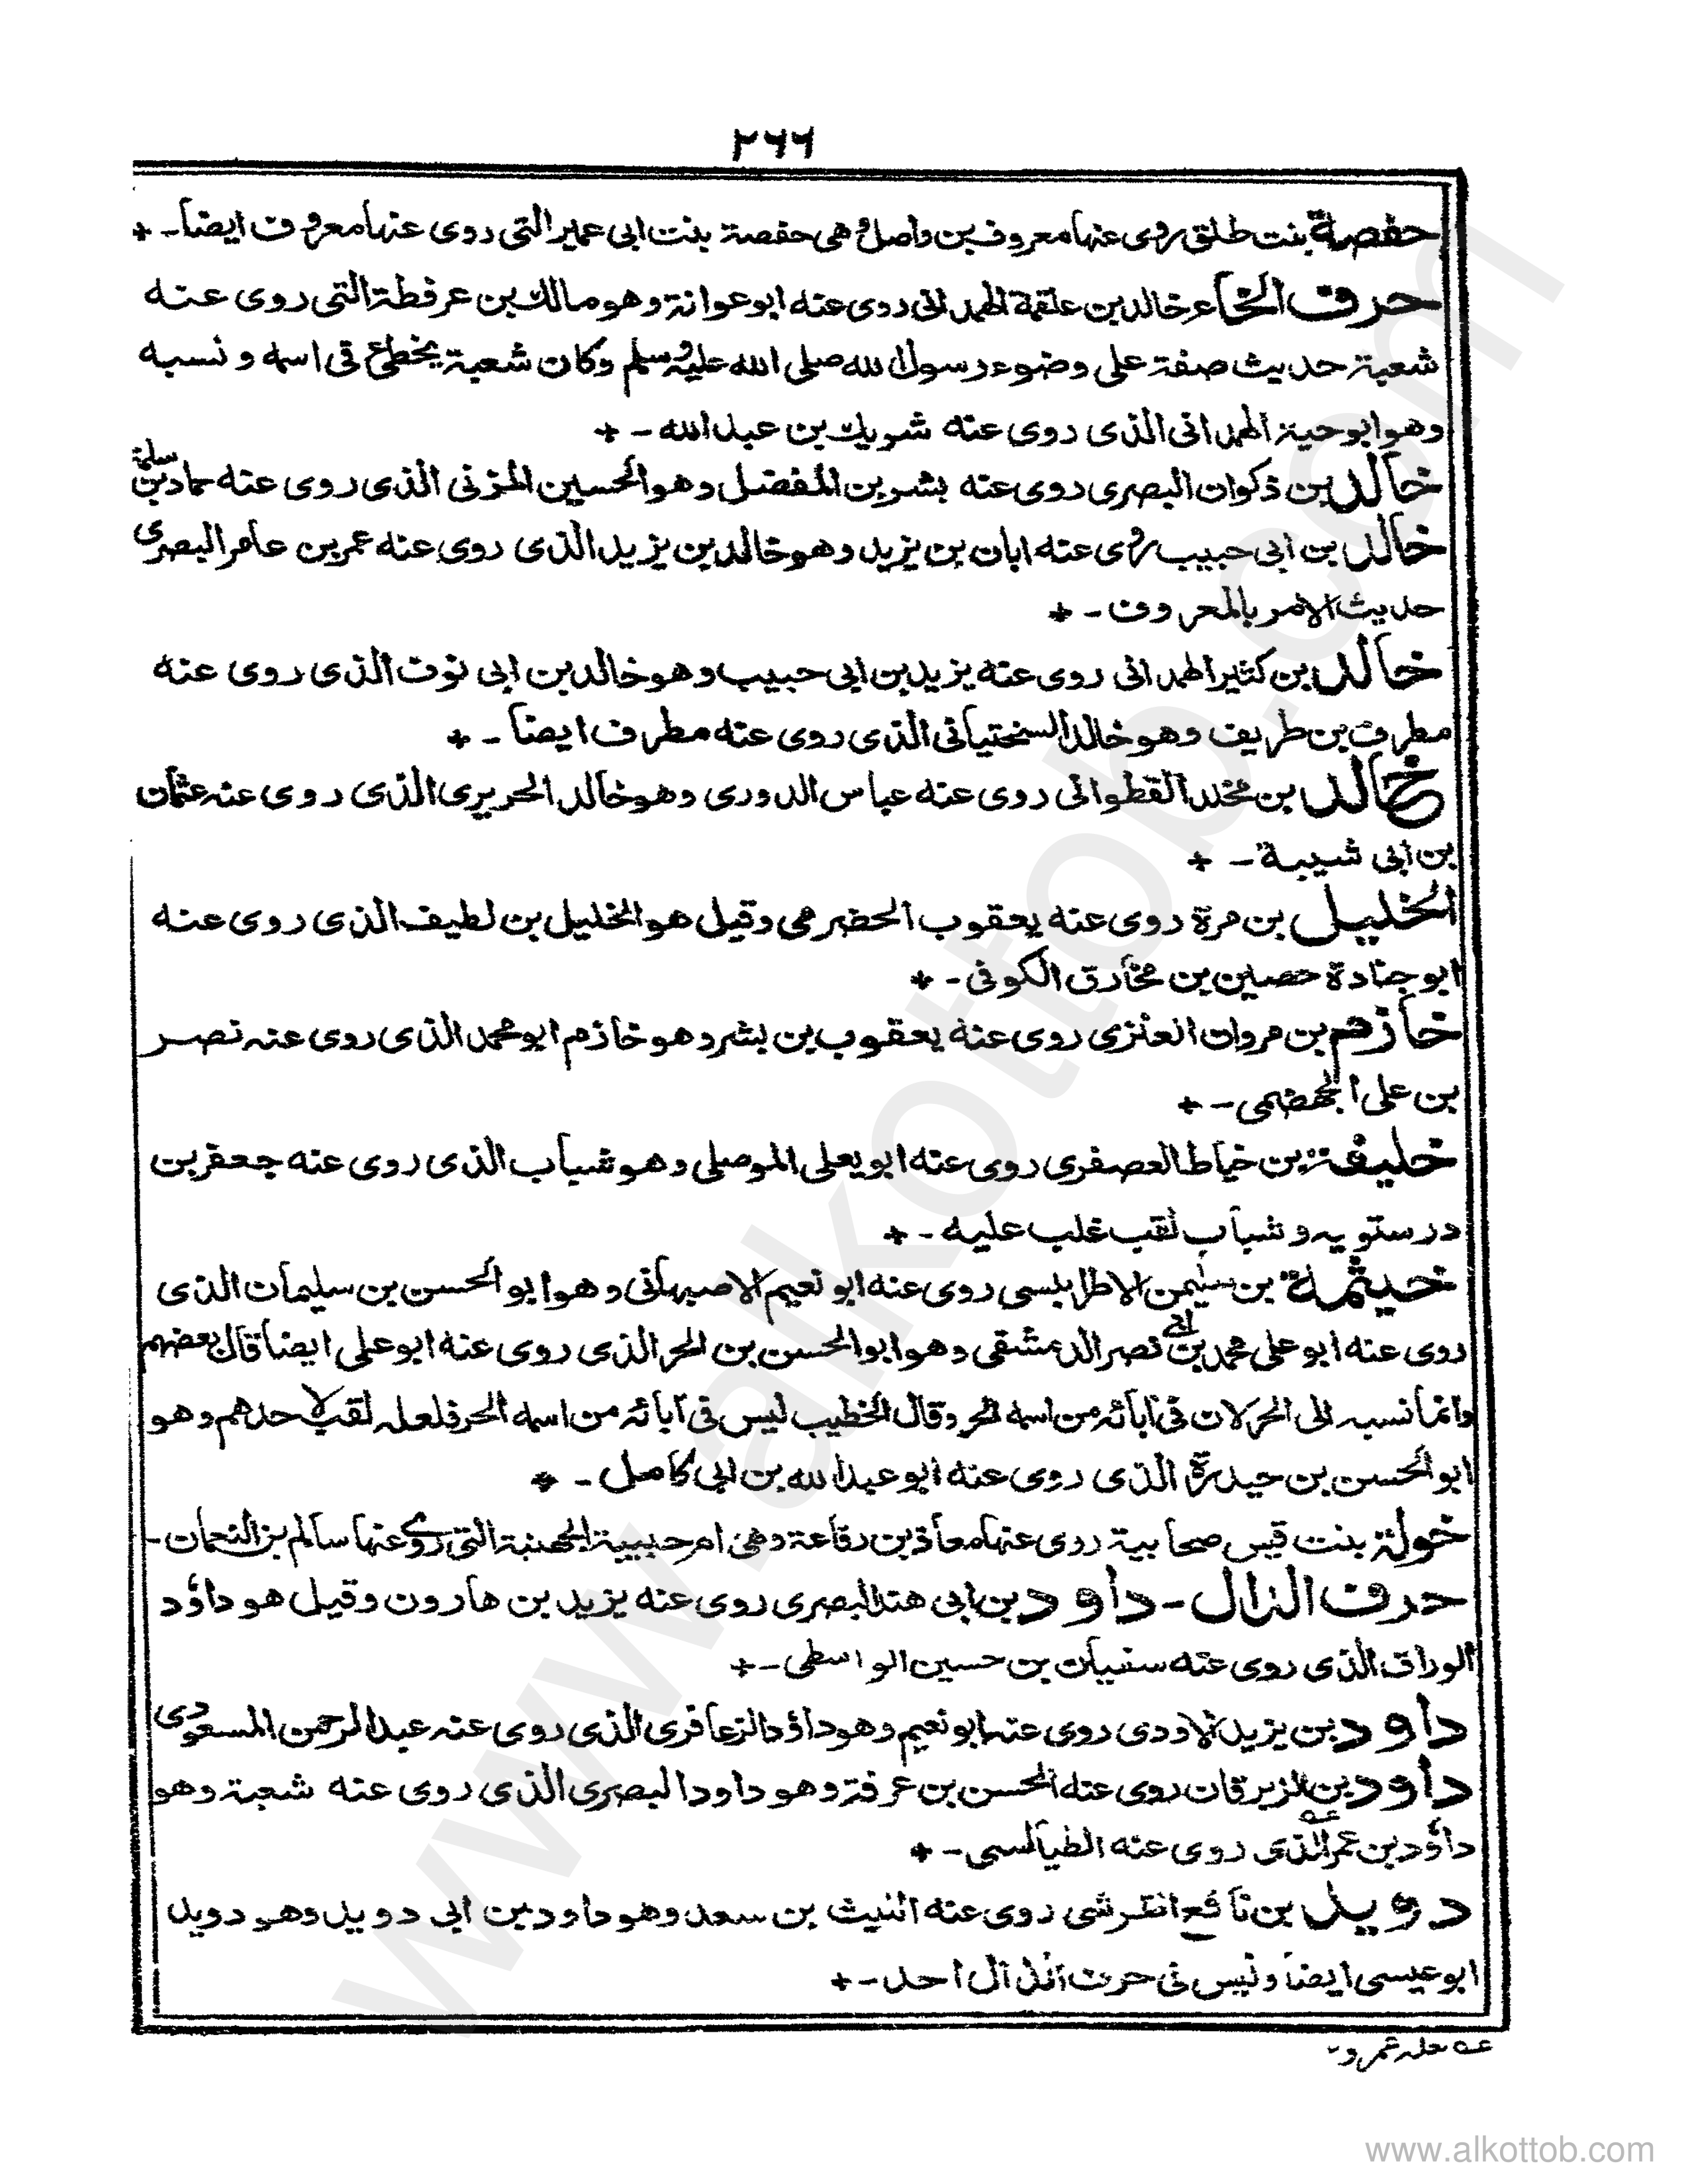 ٢٦٦
حفصة بنت طلق روى عنها معروف بن واصل وهى حفصة بنت ابى عمير التى روى عنها معروف ايضا - +
حرف الخاء خالد بن علقمة الهمدانى روى عنه ابو عوانة وهو مالك بن عرفطة التى روى عنه
شعبة حديث صفة على وضوء رسول الله صلى الله عليه وسلم وكان شعبة يخطئ فى اسمه و نسبه
وهو ابو حية الهمدانى الذى روى عنه شريك بن عبد الله - +
خالد بن ذكوان البصرى روى عنه بشر بن المفضل وهو الحسين المزنى الذى روى عنه حماد بن سلمة
خالد بن ابى حبيب روى عنه ابان بن يزيد وهو خالد بن يزيد الذى روى عنه عمر بن عامر البصرى
حديث الامر بالمعروف - +
خالد بن كثير الهمدانى روى عنه يزيد بن ابى حبيب وهو خالد بن ابى نوف الذى روى عنه
مطرف بن طريف وهو خالد السختيانى الذى روى عنه مطرف ايضا - +
خالد بن مخلد القطوانى روى عنه عباس الدورى وهو خالد الحريرى الذى روى عنه عثمان
بن ابى شيبة - +
الخليل بن مرة روى عنه يعقوب الحضرمى وقيل هو الخليل بن لطيف الذى روى عنه
ابو جنادة حصين بن مخارق الكوفى - +
خازم بن مروان العنزى روى عنه يعقوب بن بشر وهو خازم ابو محمد الذى روى عنه نصر
بن على الجهضمى - +
خليفة بن خياط العصفرى روى عنه ابو يعلى الموصلى وهو شباب الذى روى عنه جعفر بن
درستويه و شباب لقب غلب عليه - +
خيثمة بن سليمن الاطرابلسى روى عنه ابو نعيم الاصبهانى وهو ابو الحسن بن سليمان الذى
روى عنه ابو على محمد بن ابى نصر الدمشقى وهو ابو الحسن بن الحر الذى روى عنه ابو على ايضا قال بعضهم
وانما نسبه الى الحر لان فى آبائه من اسمه الحر وقال الخطيب ليس فى آبائه من اسمه الحر فلعله لقب لاحدهم وهو
ابو الحسن بن حيدرة الذى روى عنه ابو عبد الله بن ابى كامل - +
خولة بنت قيس صحابية روى عنها معاذ بن رفاعة وهى ام حبيبة الجهنية التى روى عنها سالم بن النعمان -
حرف الدال - داود بن ابى هند البصرى روى عنه يزيد بن هارون وقيل هو داؤد
الوراق الذى روى عنه سفيان بن حسين الواسطى - +
داود بن يزيد الاودى روى عنه ابو نعيم وهو داؤد الزعافرى الذى روى عنه عبد الرحمن المسعودى
داود بن الزبرقان روى عنه الحسن بن عرفة وهو داود البصرى الذى روى عنه شعبة وهو
داؤد بن عمر عه الذى روى عنه الطيالسى - +
دويد بن نافع القرشى روى عنه الليث بن سعد وهو داود بن ابى دويد وهو دويد
ابو عيسى ايضا وليس فى حرف الذال احد - +
عه لعله عمرو
www.alkottob.com
www.alkottob.com